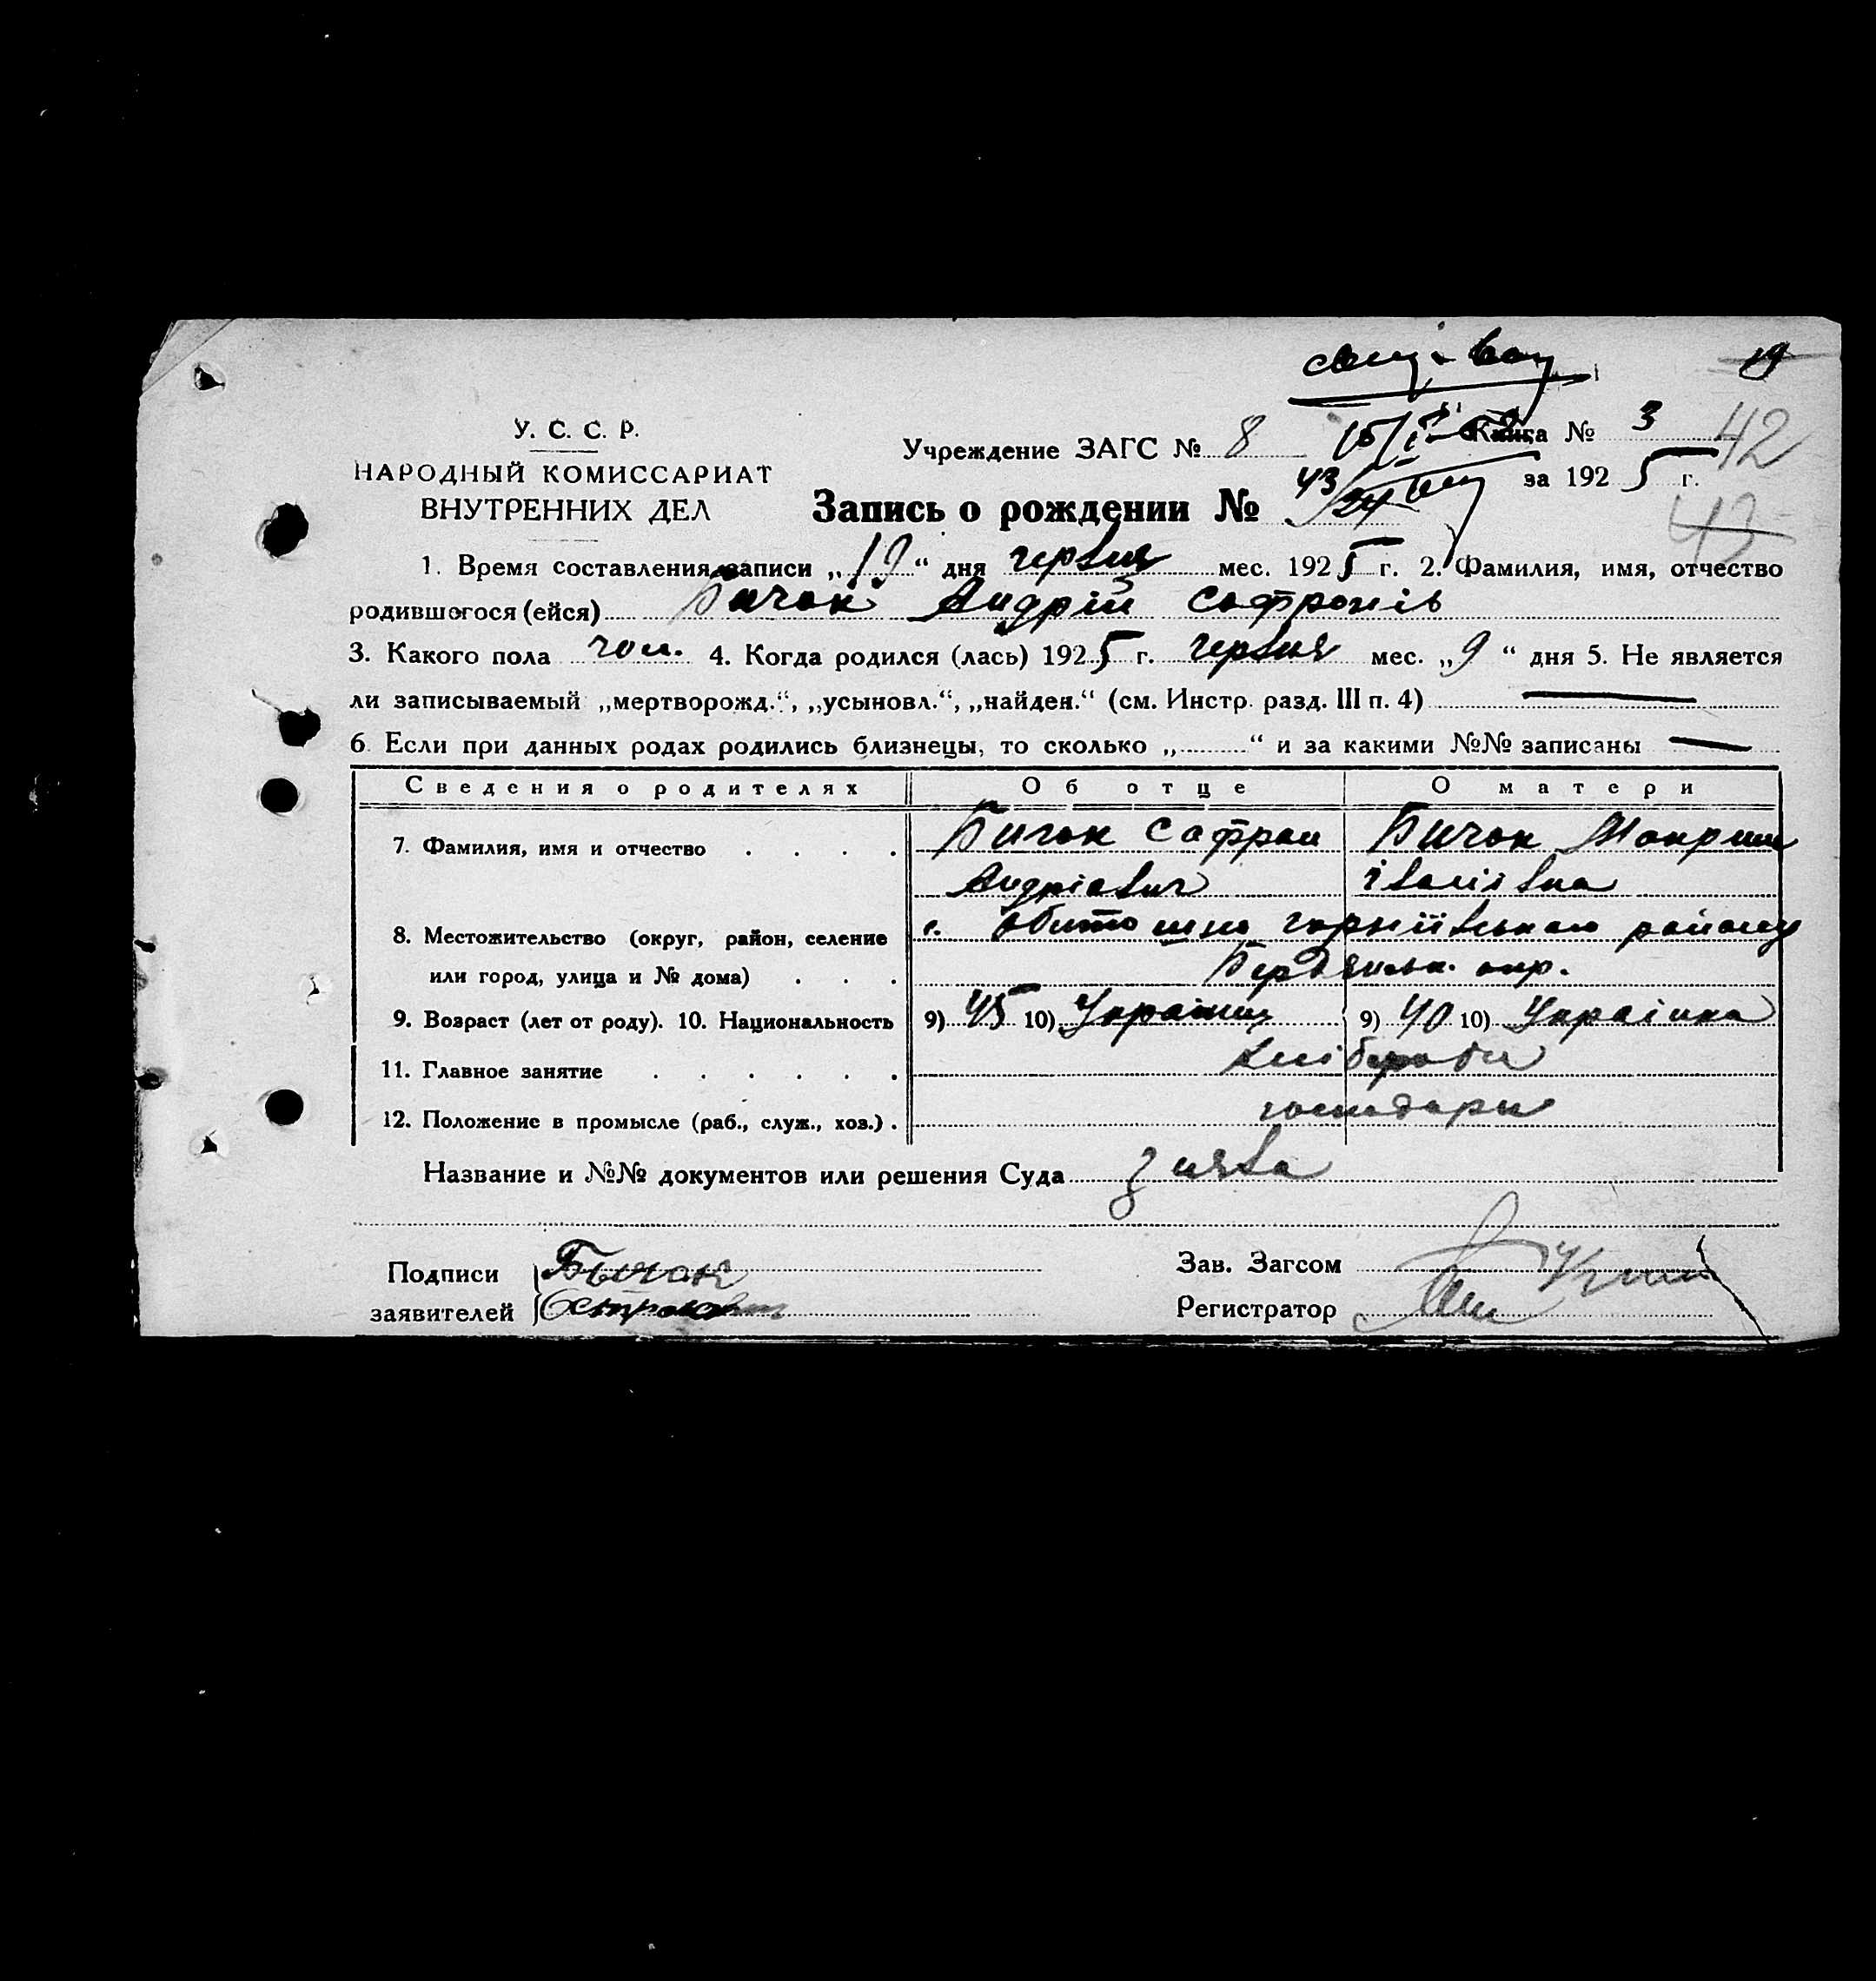 19
У. С. С. Р.
НАРОДНЫЙ КОМИССАРИАТ
ВНУТРЕННИХ ДЕЛ
Учреждение ЗАГС № 8
Книга № 3
42
за 1925 г.
Запись о рождении № 43
43
1. Время составления записи „19“ дня червня мес. 1925 г. 2. Фамилия, имя, отчество
родившегося (ейся) Бичок Андрій Софронів
3. Какого пола чол. 4. Когда родился (лась) 1925 г. червня мес. „9“ дня 5. Не является
ли записываемый „мертворожд.“, „усыновл.“, „найден.“ (см. Инстр. разд. III п. 4) —
6. Если при данных родах родились близнецы, то сколько „ “ и за какими №№ записаны —
Сведения о родителях Об отце О матери
7. Фамилия, имя и отчество Бичок Софрон Бичок Мокрина
Андрієвич Іванівна
8. Местожительство (округ, район, селение с. Обиточно району
или город, улица и № дома) Бердянськ. окр.
9. Возраст (лет от роду). 10. Национальность 9) 45 10) Українец 9) 40 10) Українка
11. Главное занятие хліборобы
12. Положение в промысле (раб., служ., хоз.) господарь
Название и №№ документов или решения Суда заява
Подписи Бычок
заявителей
Зав. Загсом
Регистратор